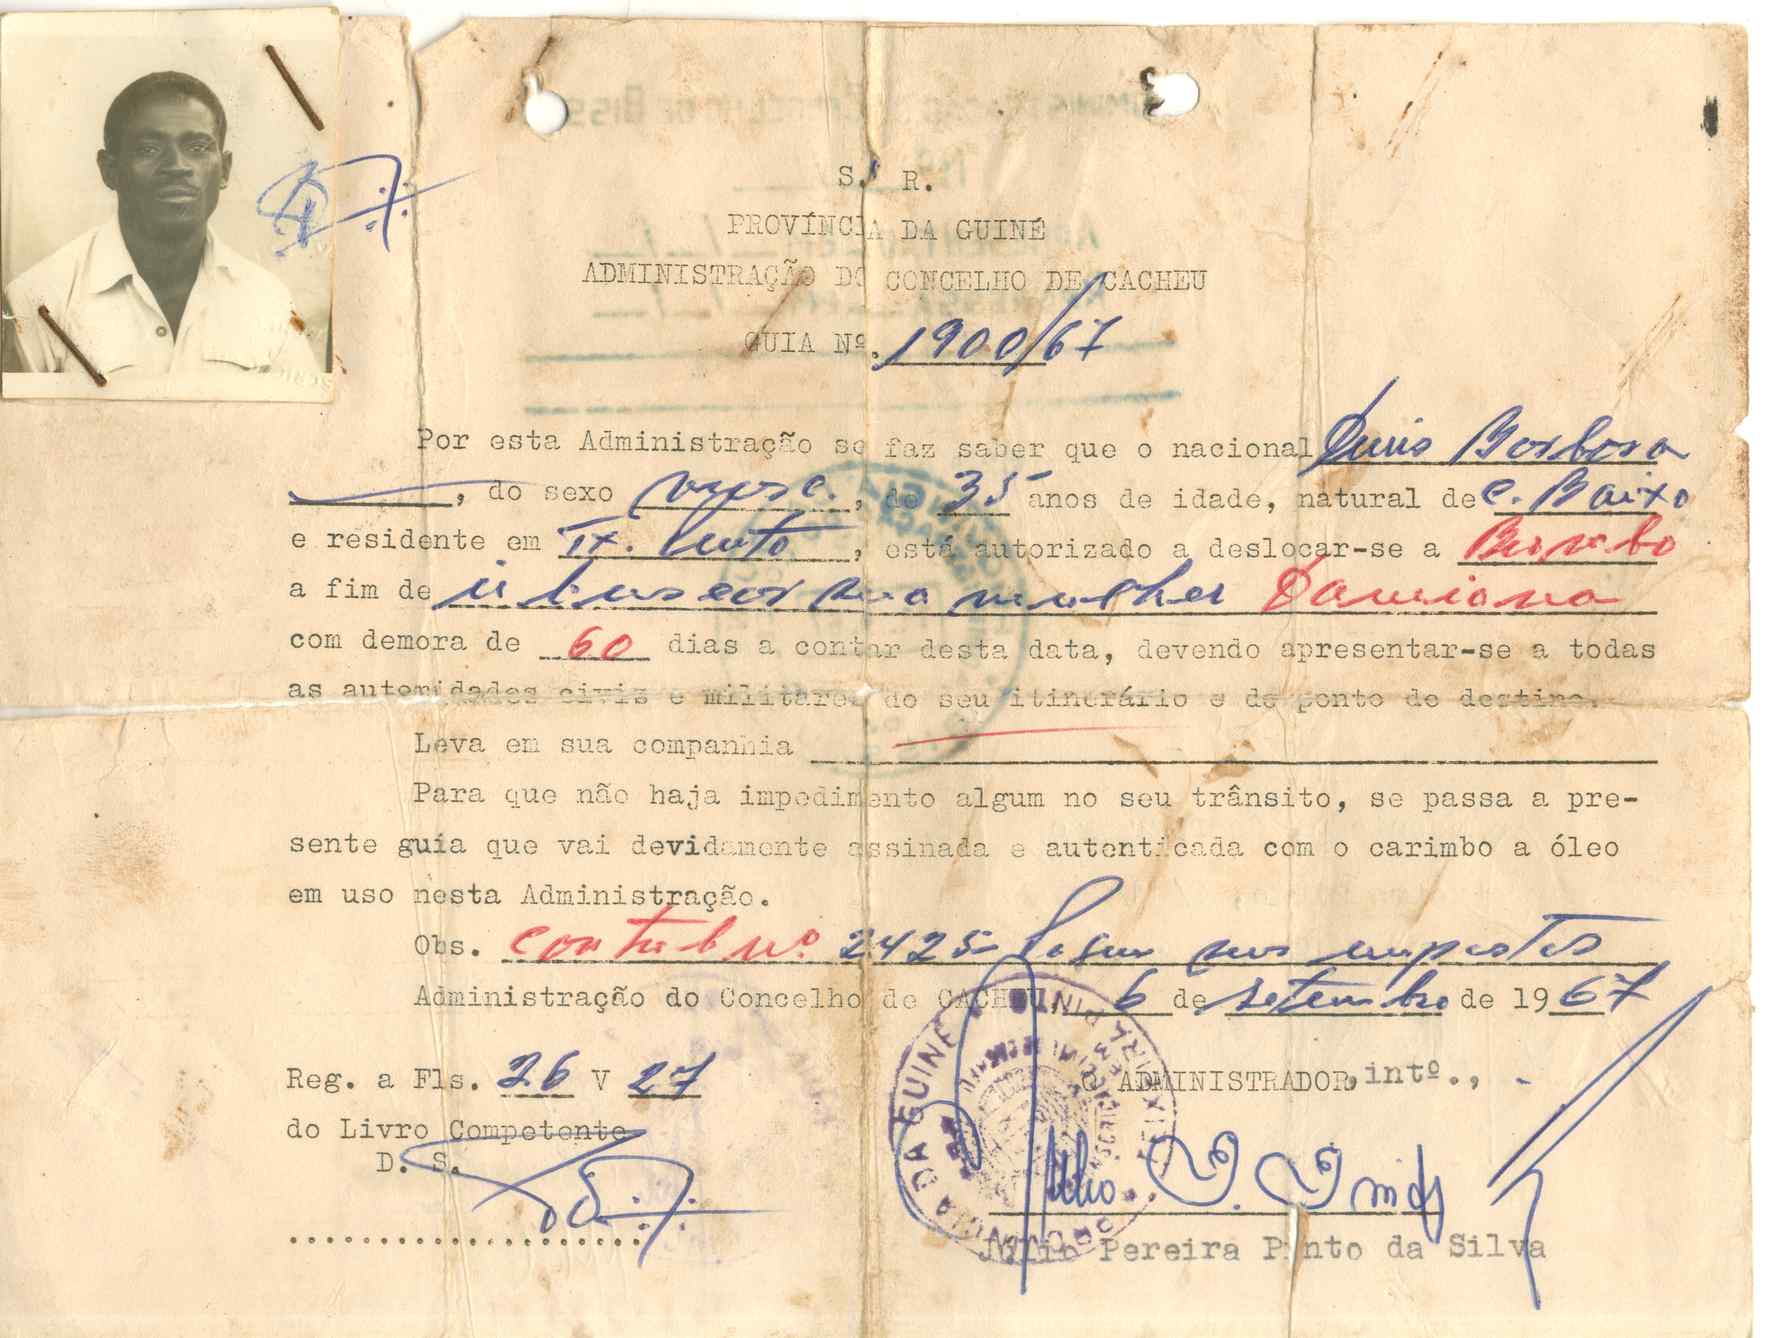 S. R.
PROVÍNCIA DA GUINÉ
ADMINISTRAÇÃO DO CONCELHO DE CACHEU
GUIA Nº. 1900/67
Por esta Administração se faz saber que o nacional Luis Barbosa
, do sexo masc., de 35 anos de idade, natural de C. Baixo
e residente em , está autorizado a deslocar-se a
a fim de ir buscar sua mulher Damiana
com demora de 60 dias a contar desta data, devendo apresentar-se a todas
as autoridades civis e militares do seu itinerário e do ponto de destino.
Leva em sua companhia
Para que não haja impedimento algum no seu trânsito, se passa a pre-
sente guia que vai devidamente assinada e autenticada com o carimbo a óleo
em uso nesta Administração.
Obs. Contrib nº 2425 Pagou seus impostos
Administração do Concelho de CACHEU, 6 de Setembro de 1967
Reg. a Fls. 26 V 27
do Livro Competente
D. S.
O ADMINISTRADOR, intº.,
Júlio Pereira Pinto da Silva
PROVÍNCIA DA GUINÉ